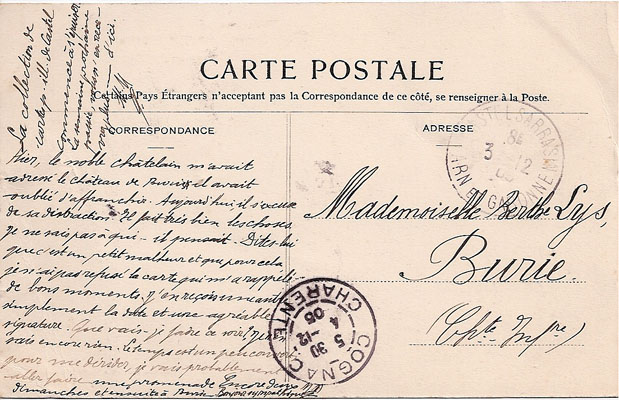 La collection de
cartes-ill. de Castel
commence à s'épuiser
la semaine prochaine
d'ici.
CARTE POSTALE
Certains Pays Étrangers n'acceptant pas la Correspondance de ce côté, se renseigner à la Poste.
CORRESPONDANCE
Hier, le noble chatelain m'avait
adressé le château de il avait
oublié d'affranchir. Aujourd'hui, il s'excuse
de sa distraction. Il fait très bien les choses.
Je ne sais pas à qui il pensait. Dites-lui
que c'est un petit malheur et que pour cela
je n'ai pas refusé la carte qui m'a rappelé
de bons moments. J'en reconnus
simplement la date et une agréable
signature. Que vais-je faire ce soir? Je n'en
sais encore rien. Le temps est un peu
pour me décider, je vais probablement
aller faire une promenade. Encore deux
dimanches et ensuite à Burie. Bonjour sympathique
ADRESSE
CASTELSARRASIN
3 12
TARN ET GARONNE
Mademoiselle Berthe Lys,
Burie.
(Chte Infre)
COGNAC
5 30
4 -12
05
CHARENTE